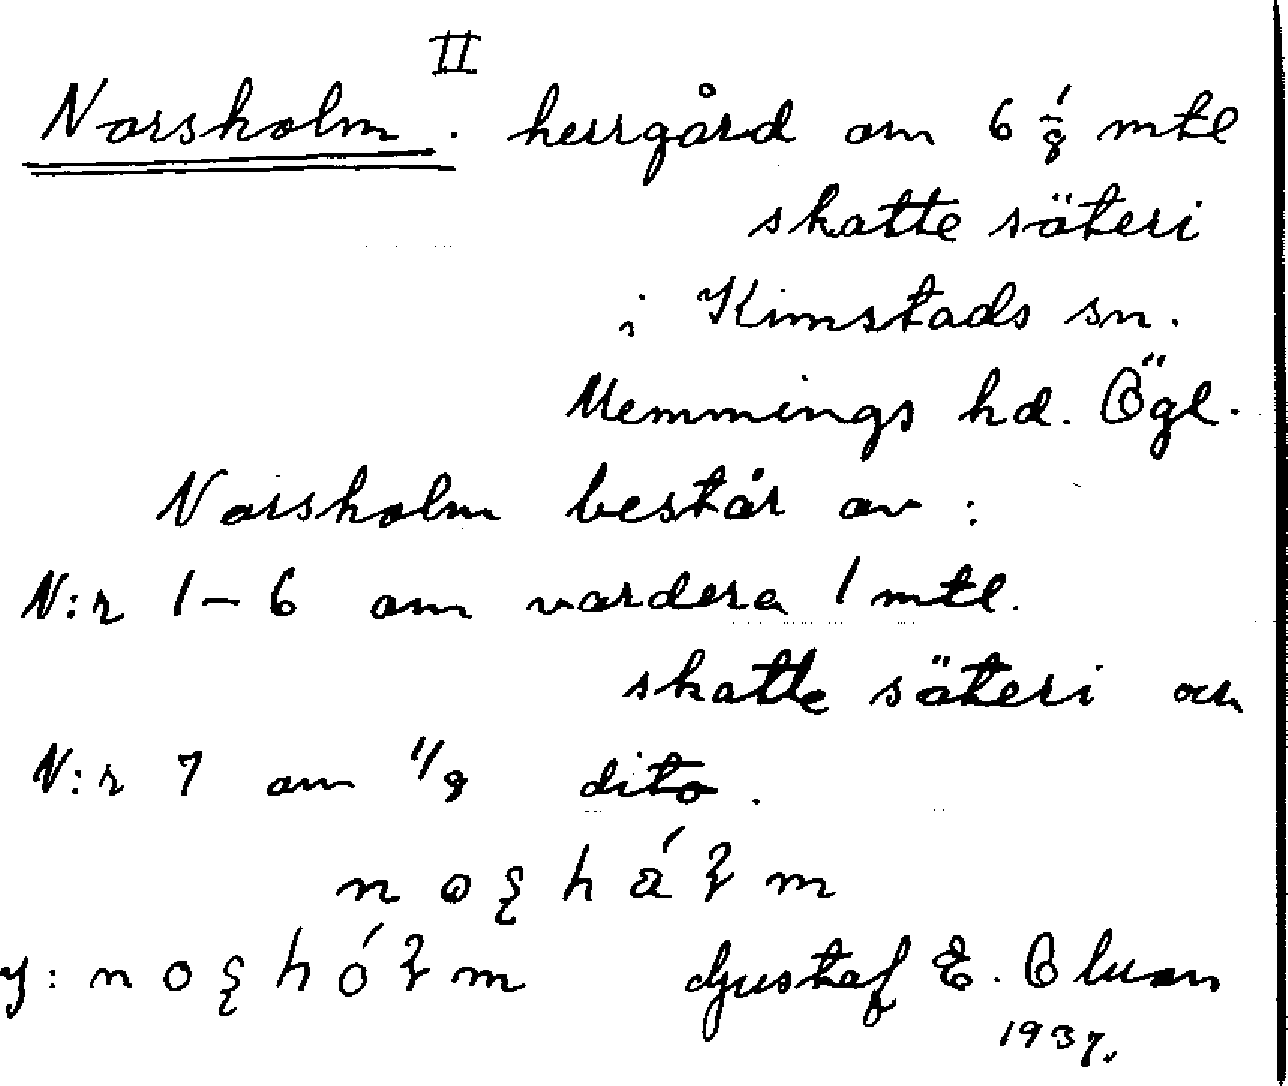 II
Norsholm. herrgård om 6 1/8 mtl
skatte säteri
i Kimstads sn.
Memmings hd. Ögl.
Norsholm består av:
N:r 1–6 om vardera 1 mtl.
skatte säteri och
N:r 7 om 1/8 dito.
y: Gustaf E.
1937.